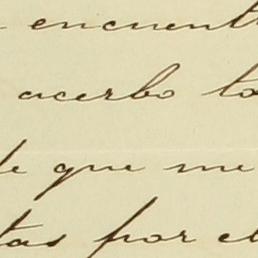 encuent
acerbo to
de que me
tas por el